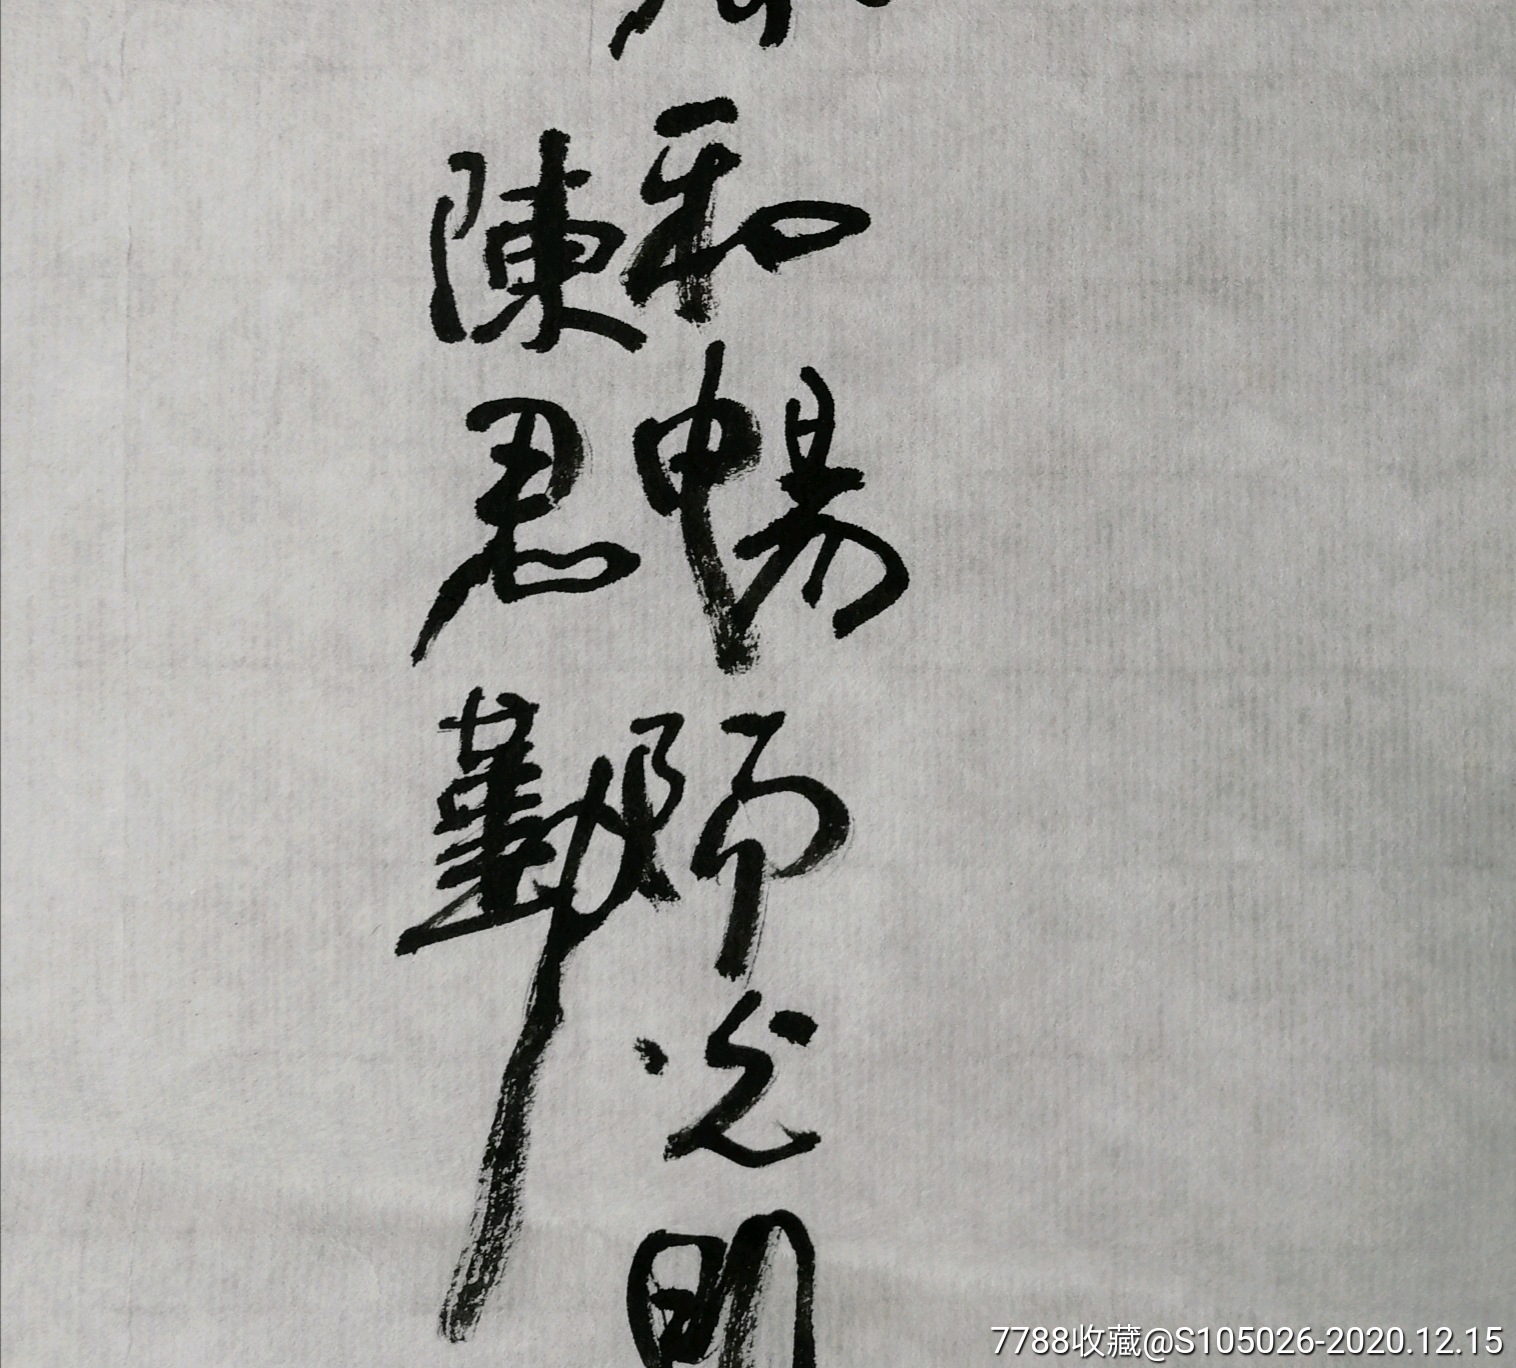 和暢师光明
陳君勤
7788收藏@S105026-2020.12.15